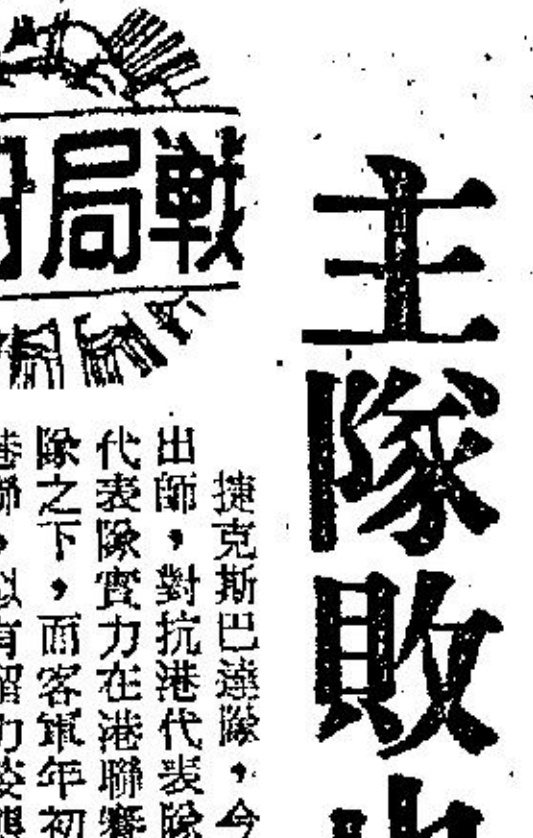 主隊敗
戰局
捷克斯巴達隊，今
出師，對抗港代表隊
代表隊實力在港聯賽
隊之下，而客軍年初
港聯，似有留力